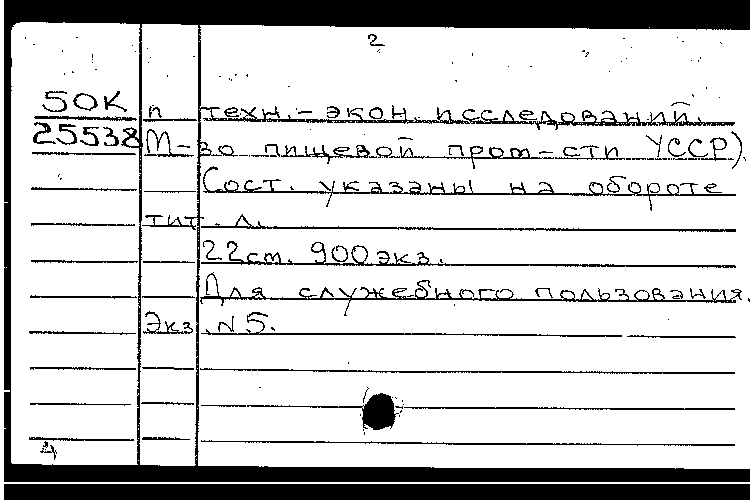 2
50К п техн.-экон. исследований.
25538 М-во пищевой пром-сти УССР).
Сост. указаны на обороте
тит. л.
22 см. 900 экз.
Для служебного пользования.
Экз. N 5.
4